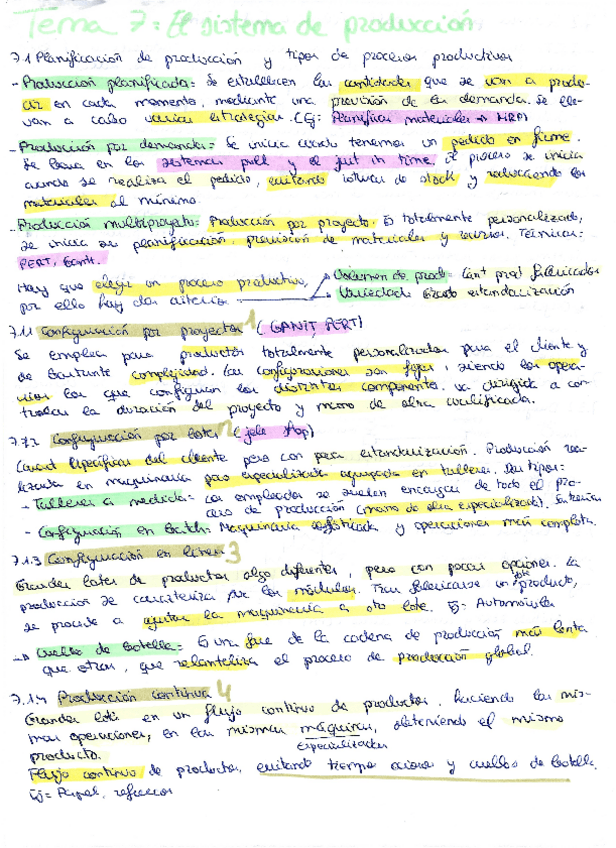 Tema 7: El sistema de producción
7.1 Planificación de producción y tipos de procesos productivos
- Producción planificada: Se establecen las cantidades que se van a produ-
cir en cada momento, mediante una previsión de la demanda. Se lle-
van a cabo varias estrategias. (Ej: Planificar materiales → MRP)
- Producción por demanda: Se inicia cuando tenemos un pedido en firme.
Se basa en los sistemas pull y el just in time. El proceso se inicia
cuando se realiza el pedido, evitando roturas de stock y reduciendo los
materiales al mínimo.
- Producción multiproyecto: Producción por proyecto. Es totalmente personalizado,
se inicia su planificación, previsión de materiales y recursos. Técnicas:
PERT, Gantt.
Hay que elegir un proceso productivo,
por ello hay dos criterios
Volumen de prod: Cant prod fabricados
Variedad: Grado estandarización
7.1.1 Configuración por proyectos 1 (GANTT, PERT)
Se emplea para productos totalmente personalizados para el cliente y
de bastante complejidad. Las configuraciones son fijas, siendo los opera-
rios los que configuran los distintos componentes. Va dirigida a con-
trolar la duración del proyecto y mano de obra cualificada.
7.1.2 Configuración por lotes 2 (job shop)
Caract específicas del cliente pero con poca estandarización. Producción rea-
lizada en maquinaria poco especializada agrupada en talleres. Dos tipos:
- Talleres a medida: Los empleados se suelen encargar de todo el pro-
ceso de producción (mano de obra especializada).
- Configuración en batch: Maquinaria sofisticada y operaciones más completa.
7.1.3 Configuración en línea 3
Grandes lotes de productos algo diferentes, pero con pocas opciones. La
producción se caracteriza por los módulos. Tras fabricarse un lote producto,
se procede a ajustar la maquinaria a otro lote. Ej: Automóviles
→ Cuello de botella: Es una fase de la cadena de producción más lenta
que otras, que ralentiza el proceso de producción global.
7.1.4 Producción continua 4
Grandes lotes en un flujo continuo de productos, haciendo las mis-
mas operaciones, en las mismas máquinas, obteniendo el mismo
especializadas
producto.
Flujo continuo de productos, evitando tiempo ocioso y cuellos de botella.
Ej: Papel, refrescos